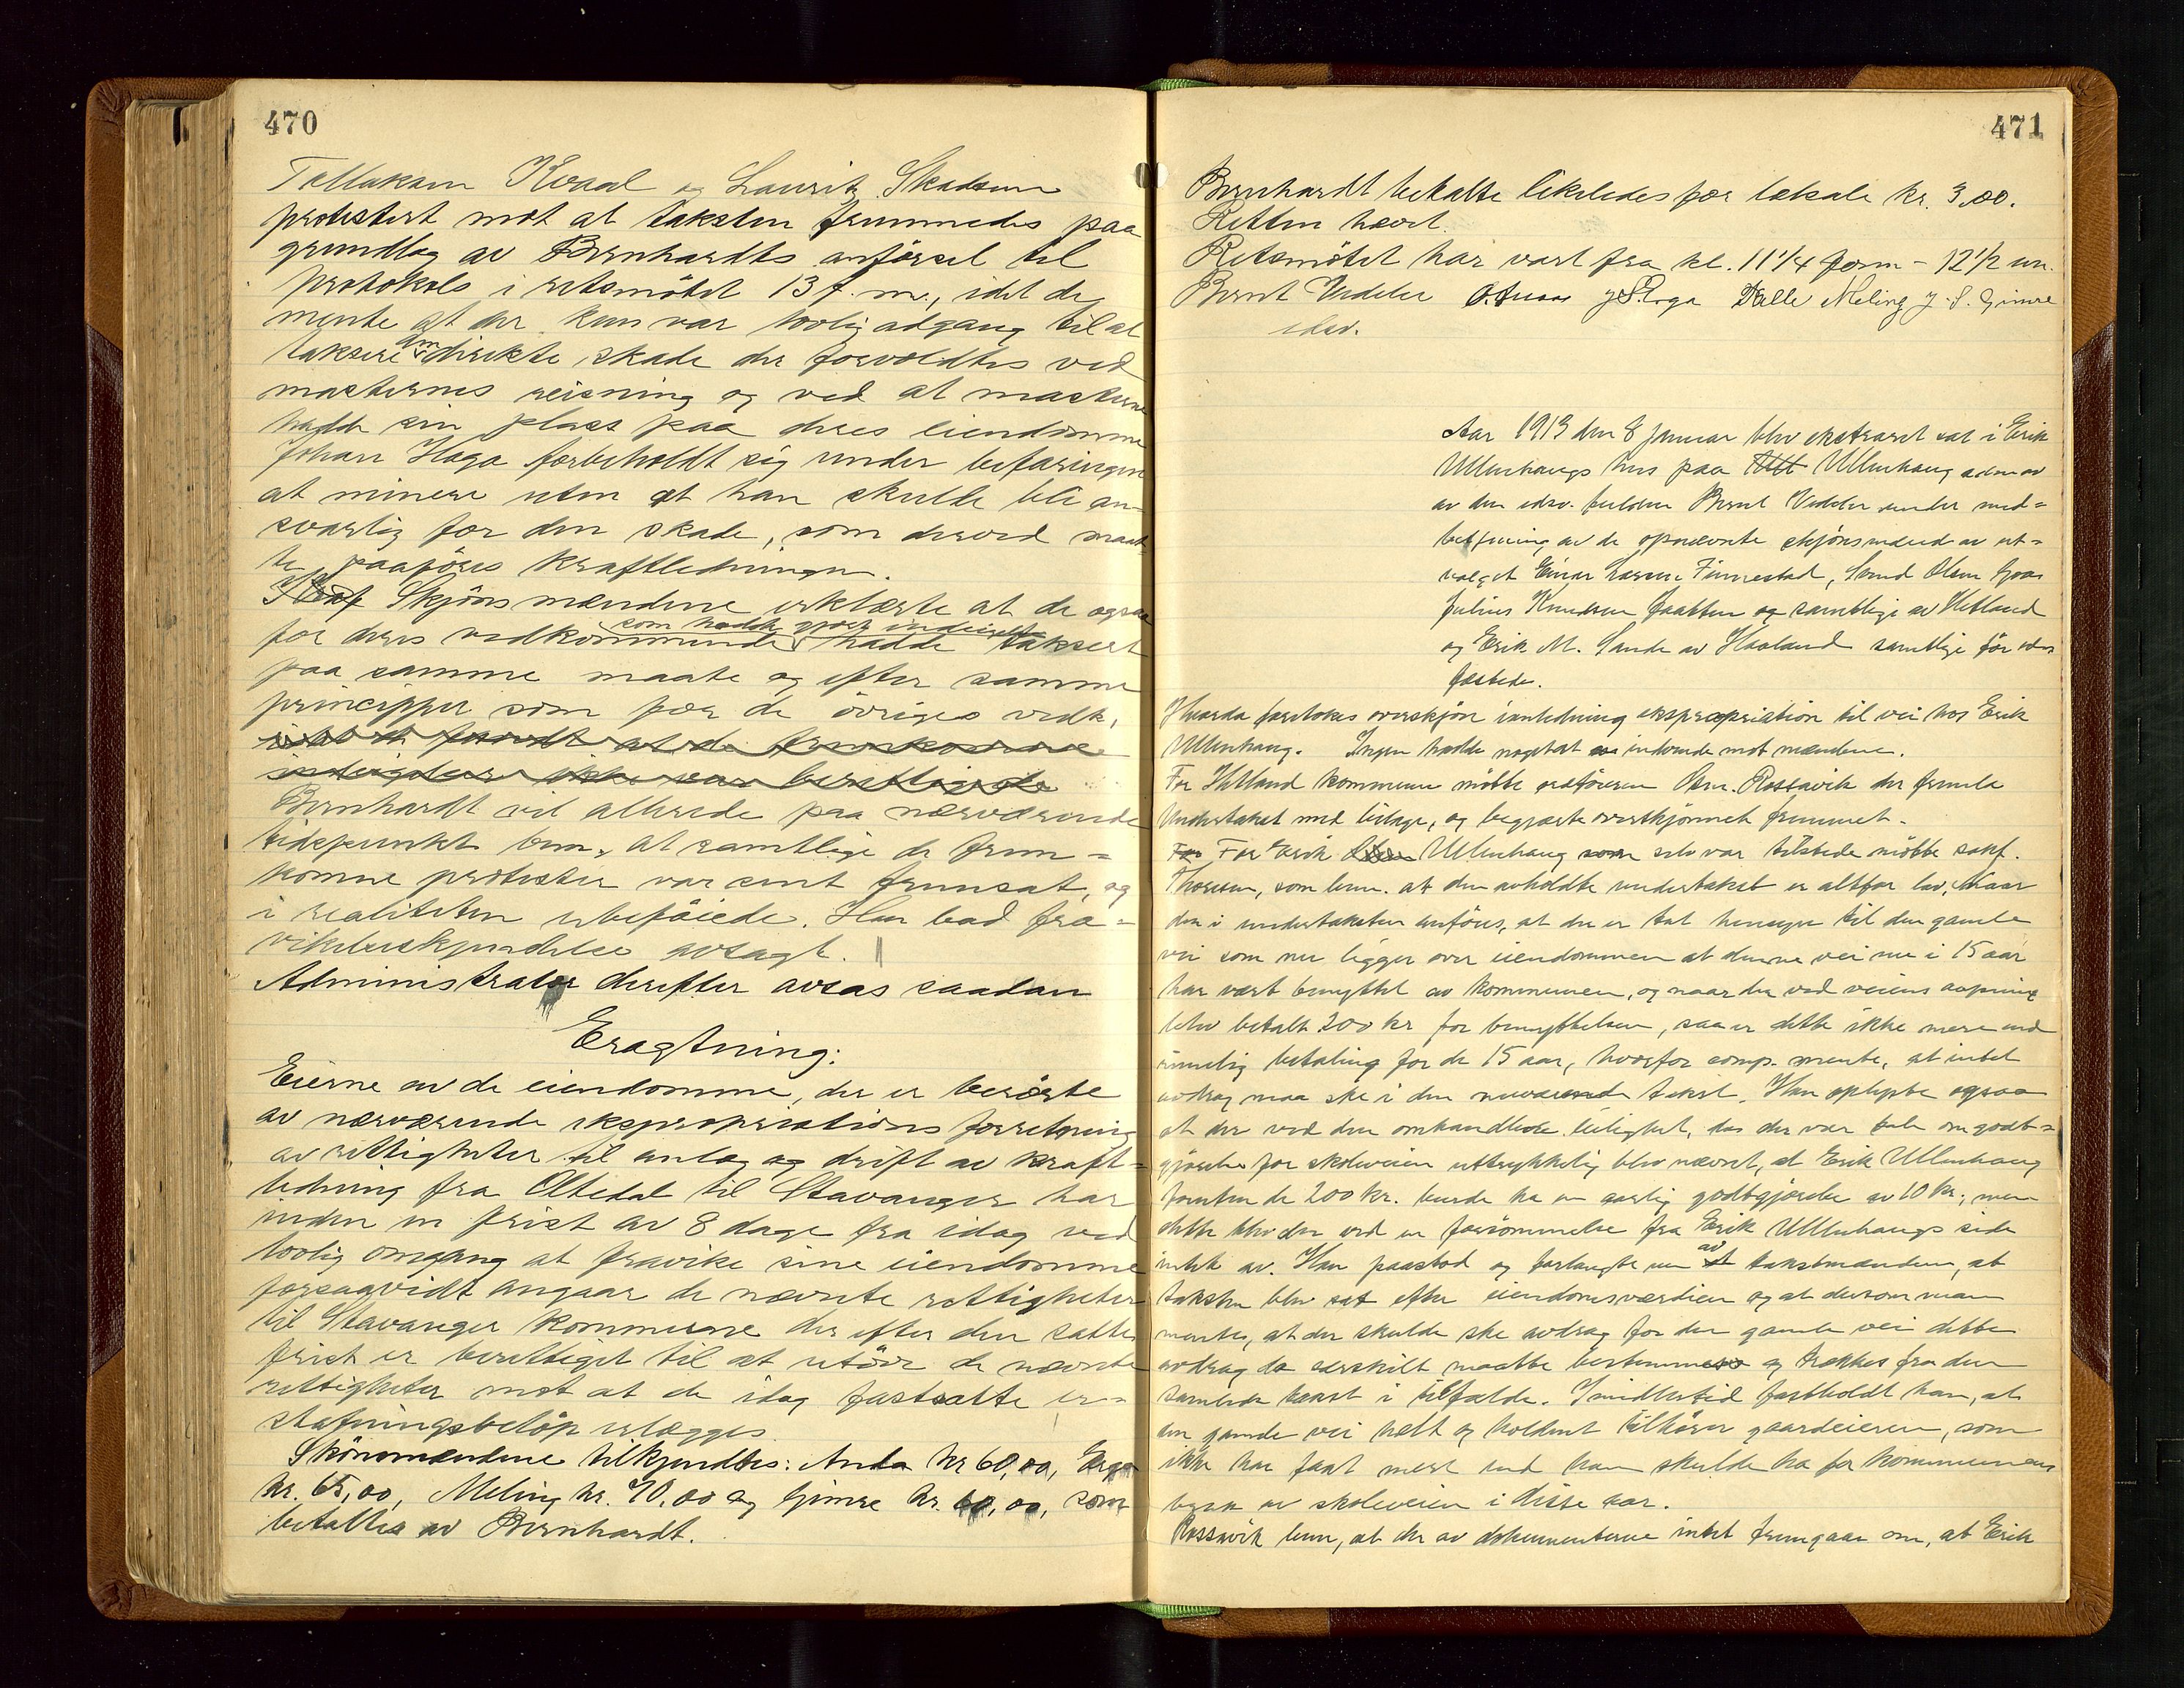 470
Tallaksen Kvaal og Lauritz Skadsem
protestert mot at taksten fremmedes paa
grundlag av Bernhardts anförsel til
protokols i retsmötet 13 f. m., idet de
mente at der kun var lovlig adgang til at
taksere den direkte skade der forvoldtes ved
masternes reisning og ved at masterne
hadde sin plass paa deres eiendomme
Johan Haga forbeholdt sig under befaringen
at minere uten at han skulde bli an-
svarlig for den skade, som derved maat
te paaföres kraftledningen.
Skjönsmændene erklærte at de ogsaa
for deres vedkommende som hadde gjort indsigelse hadde taksert
paa samme maate og efter samme
principper som for de övriges vedk.
Bernhardt vil allerede paa nærværende
tidspunkt bem. at samtlige de frem-
komne protester var sent fremsat, og
i realiteten ubeföiede. Han bad fra-
vikelseskjendelse avsagt. ||
Administrator derefter avsas saadan
Eragtning:
Eierne av de eiendomme, der er berörte
av nærværende ekspropriations forretning
av rettigheter til anlæg og drift av kraft-
ledning fra Oltedal til Stavanger har
inden en frist av 8 dage fra idag ved
lovlig omgang at fravike sine eiendomme
forsaavidt angaar de nævnte rettigheter
til Stavanger kommune der efter den satte
frist er berettiget til at utöve de nævnte
rettigheter mot at de idag fastsatte er-
statningsbelöp erlægges.
Skönsmændene tilkjendtes: Anda kr 60,00, Erga
kr. 65,00, Meling kr. 70,00 og Gimre kr. 60,00, som
betaltes av Bernhardt.
471
Bernhardt betalte likeledes for lokale kr. 3.00.
Retten hævet.
Retsmötet har vart fra kl. 11 1/4 form - 12 1/2 em.
Bernt Vedeler O. Anda J S Erga Dalle Meling J. S. Gimre
edsv.
Aar 1913 den 8 januar blev ekstraret sat i Erik
Ullenhaugs hus paa Ullenhaug adm av
av den edsv. fuldm Bernt Vedeler under med-
betjening av de opnævnte skjönsmænd av ut-
valget Einar Larsen Finnestad, Svend Olsen Goa
Julius Knudsen Jaatten og samtlige av Hetland
og Erik M. Sande av Haaland samtlige för eds
fæstede.
Hvorda foretokes overskjön i anledning ekspropriation til vei hos Erik
Ullenhaug. Ingen hadde noget at indvende mot mændene.
For Hetland kommune mötte ordföreren Osm. Rossavik der fremla
Undertakst med bilage, og begjærte overskjönnet fremmet.
For Erik Ullenhaug som selv var tilstede mötte sakf.
Thorsen, som bem. at den avholdte undertakst er altfor lav. Naar
der i undertaksten anföres, at der er tat hensyn til den gamle
vei som nu ligger over eiendommen at denne vei nu i 15 aar
har vært benyttet av kommunen, og naar der ved veiens aapning
blev betalt 200 kr for benyttelsen, saa er dette ikke mere end
rimelig betaling for de 15 aar, hvorfor comp. mente, at intet
avdrag maa ske i den nuværende takst. Han oplyste ogsaa
at der ved den omhandlede leilighet, da der var tale om godt-
gjörelse for skoleveien uttrykkelig blev nævnt, at Erik Ullenhaug
foruten de 200 kr. burde ha en aarlig godtgjörelse av 10 kr., men
dette blev der ved en forsömmelse fra Erik Ullenhaugs side
intet av. Han paastod og forlangte nu av takstmændene, at
taksten blev sat efter eiendomsværdien og at dersom man
mente, at der skulde ske avdrag for den gamle vei dette
avdrag da særskilt maatte bestemmes og trækkes fra den
samlede takst i tilfælde. Imidlertid fastholdt han, at
den gamle vei helt og holdent tilhörer gaardeieren, som
ikke har faat mere end han skulde ha for kommunens
bruk av skoleveien i disse aar.
Rossavik bem, at der av dokumenterne intet fremgaar om, at Erik